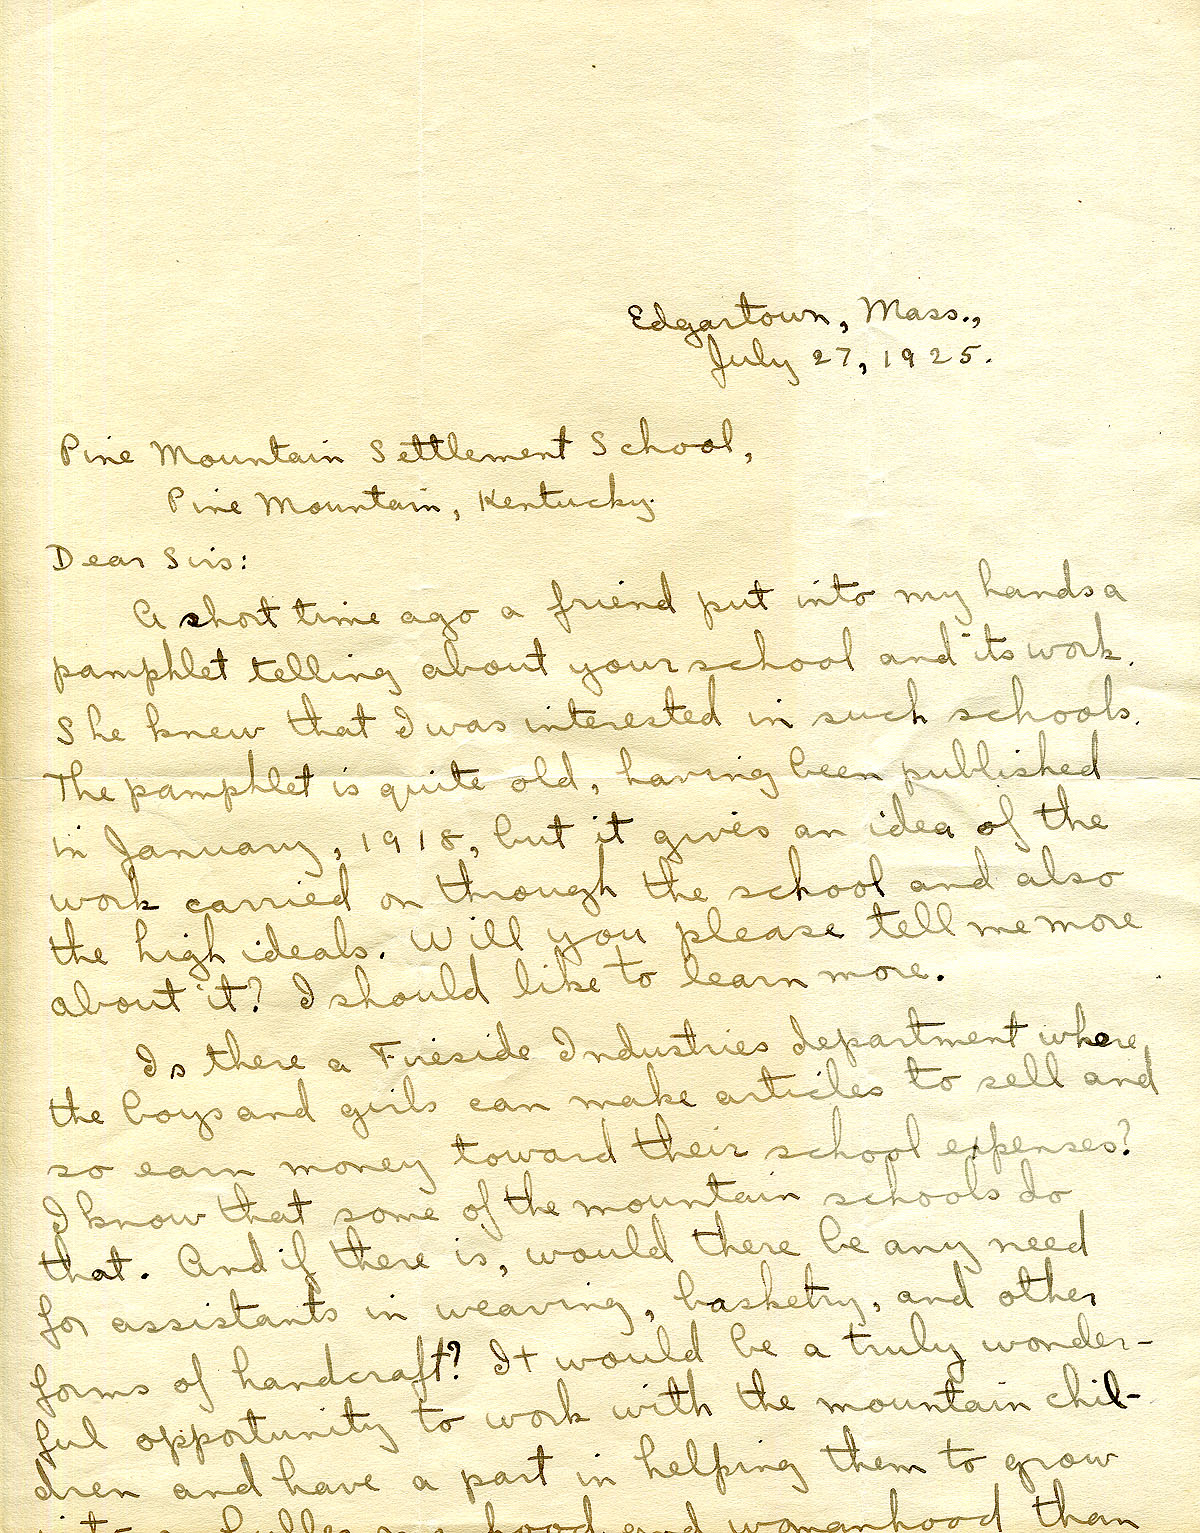 Edgartown, Mass.,
July 27, 1925.
Pine Mountain Settlement School,
Pine Mountain, Kentucky.
Dear Sirs:
A short time ago a friend put into my hands a
pamphlet telling about your school and its work.
She knew that I was interested in such schools.
The pamphlet is quite old, having been published
in January, 1918, but it gives an idea of the
work carried on through the school and also
the high ideals. Will you please tell me more
about it? I should like to learn more.
Is there a Fireside Industries department where
the boys and girls can make articles to sell and
so earn money toward their school expenses?
I know that some of the mountain schools do
that. And if there is, would there be any need
for assistants in weaving, basketry, and other
forms of handcraft? It would be a truly wonder-
ful opportunity to work with the mountain chil-
dren and have a part in helping them to grow
hood and womanhood than